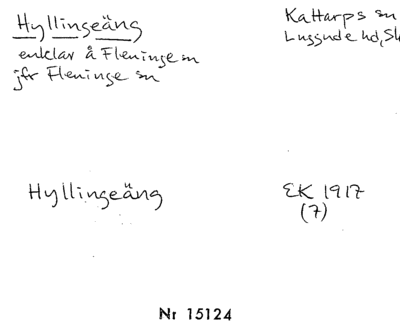 Hyllingeäng
enklav å Fleninge sn
jfr Fleninge sn
Kattarps sn
Luggude hd, Sk
Hyllingeäng
EK 1917
(7)
Nr 15124